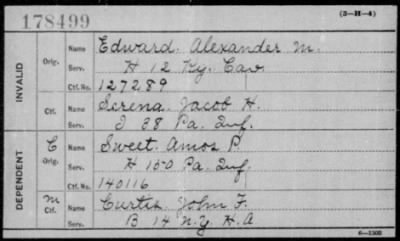 178499 (3-H-4)
INVALID Orig. Name Edward. Alexander M.
Serv. H 12 Ky. Cav.
Ctf. No. 127289
Ctf. Name Serena. Jacob H.
Serv. I 38 Pa. Inf.
DEPENDENT C Orig. Name Sweet. Amos P.
Serv. H 150 Pa. Inf.
Ctf. No. 140116
M Ctf. Name Curtis. John F.
Serv. B 14 N.Y. H.A
6-1300